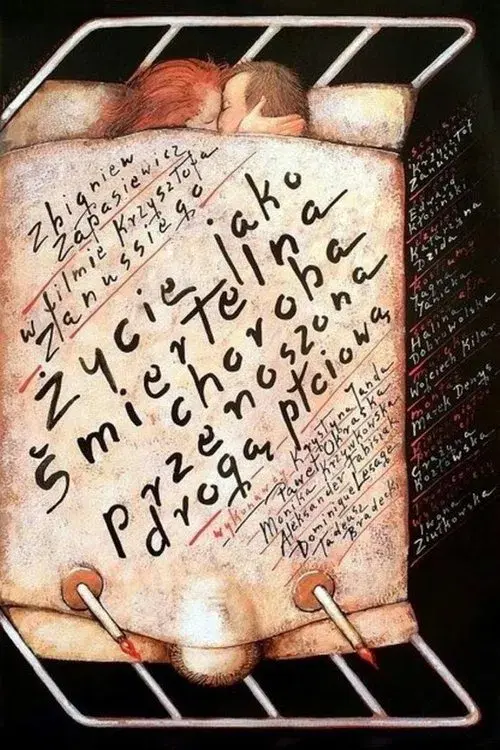 Zbigniew
Zapasiewicz
w filmie Krzysztofa
Zanussiego
Życie jako
śmiertelna
choroba
przenoszona
drogą płciową
wykonawcy Krystyna Janda
Paweł Okraska
Monika Krzywkowska
Aleksander Fabisiak
Dominique Lesage
Tadeusz
Bradecki
scenariusz
Krzysztof
Zanussi
Edward
Kłosiński
Katarzyna
Dzida
kostiumy
Jagna
Janicka
Halina
Dobrowolska
Wojciech Kilar
montaż
Marek Denys
Grażyna
Kozłowska
Iwona
Ziułkowska